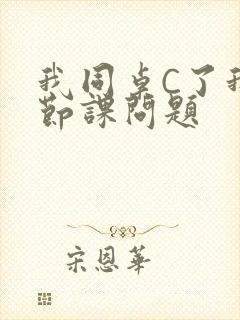 我同桌C了我
节课问题
宋恩华